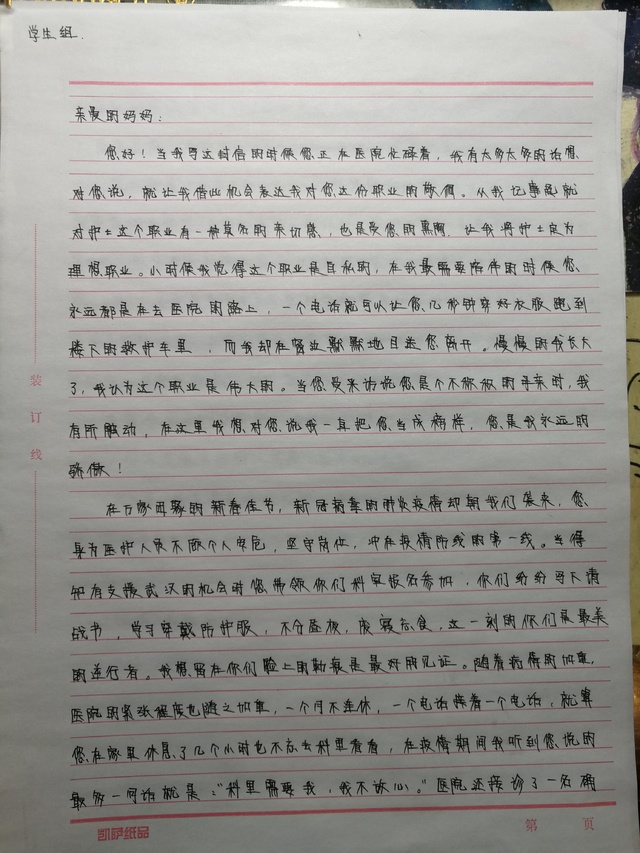 学生组.
亲爱的妈妈:
您好！当我写这封信的时候您正在医院忙碌着，我有太多太多的话想
对您说，就让我借此机会表达我对您这份职业的敬佩。从我记事起就
对护士这个职业有一种莫名的亲切感，也是受您的熏陶，让我将护士定为
理想职业。小时候我觉得这个职业是自私的，在我最需要陪伴的时候您
永远都是在去医院的路上，一个电话就可以让您几秒钟穿好衣服跑到
楼下的救护车里，而我却在窗边默默地目送您离开。慢慢的我长大
了，我认为这个职业是伟大的。当您受采访说您是个不称职的母亲时，我
有所触动，在这里我想对您说我一直把您当成榜样，您是我永远的
骄傲！
在万家团聚的新春佳节，新冠病毒的肺炎疫情却朝我们袭来，您
身为医护人员不顾个人安危，坚守岗位，冲在疫情防线的第一线。当得
知有支援武汉的机会时您带领你们科室报名参加，你们纷纷写下请
战书，学习穿戴防护服，不分昼夜，废寝忘食，这一刻的你们是最美
的逆行者。我想留在你们脸上的勒痕是最好的见证。随着病情的加重，
医院的紧张程度也随之加重，一个月不连休，一个电话接着一个电话，就算
您在家里休息了几个小时也不忘去科里看看，在疫情期间我听到您说的
最多一句话就是："科里需要我，我不放心。"医院还接诊了一名确
装订线
凯萨纸品
第 页